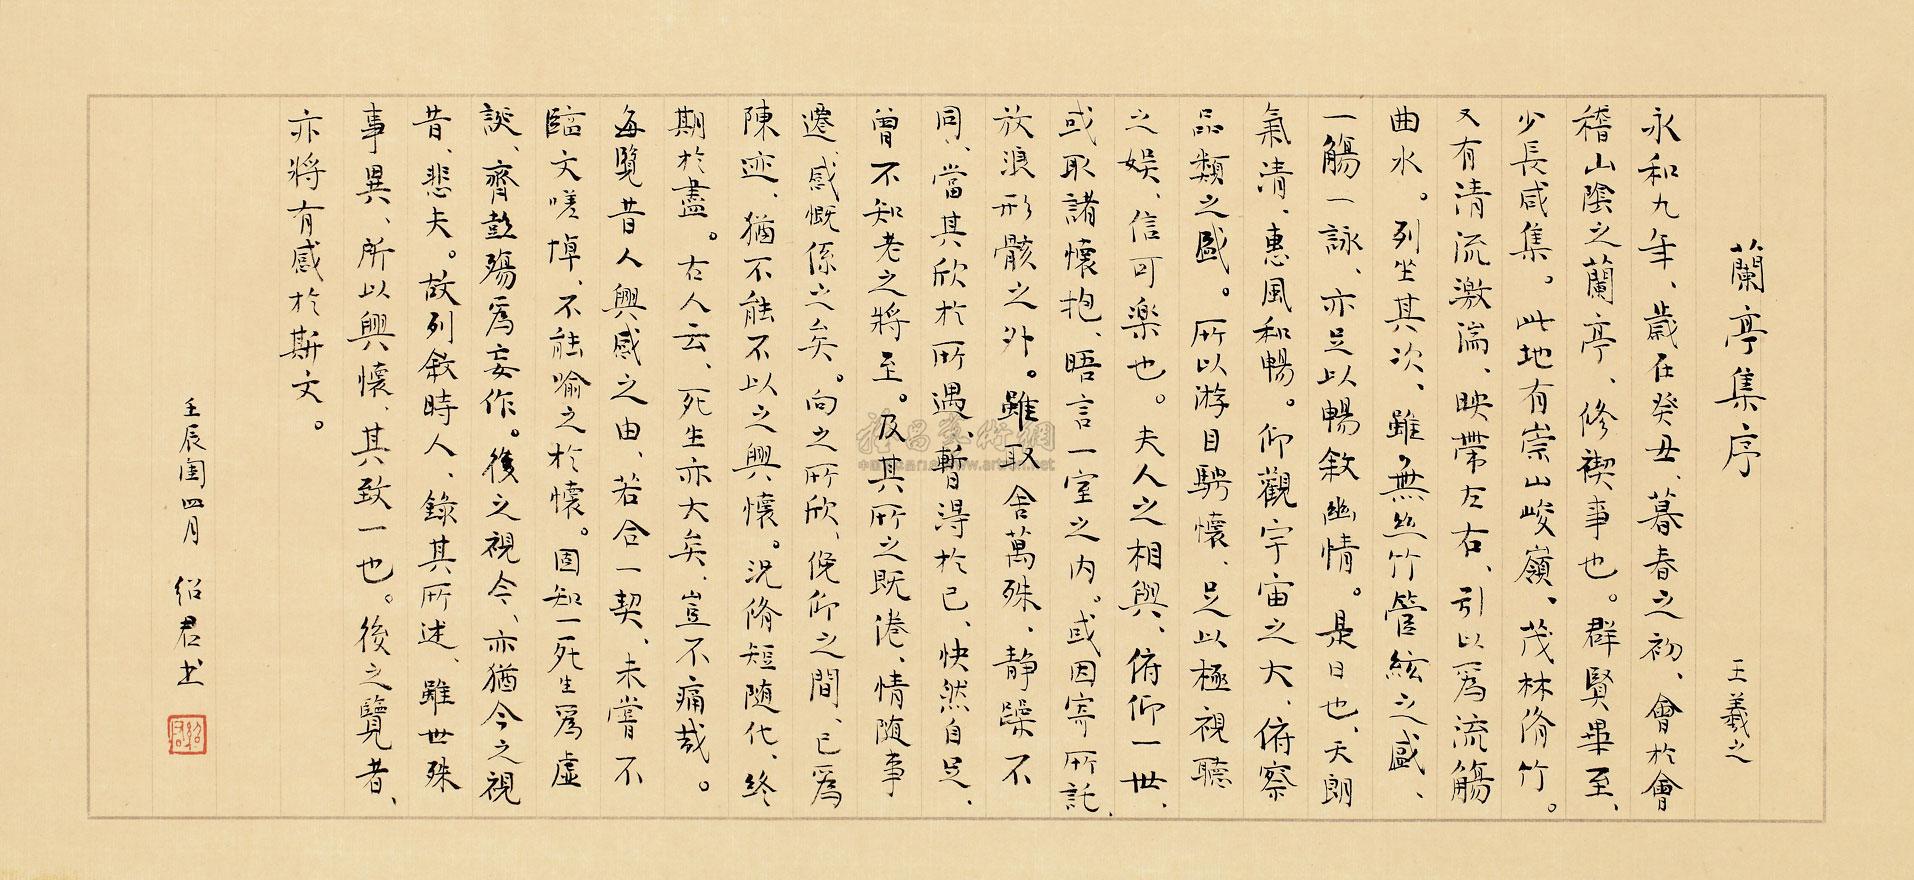 蘭亭集序 王羲之
永和九年、歲在癸丑、暮春之初、會於會
稽山陰之蘭亭、修禊事也。群賢畢至、
少長咸集。此地有崇山峻嶺、茂林脩竹。
又有清流激湍、映帶左右、引以為流觴
曲水。列坐其次、雖無絲竹管絃之盛、
一觴一詠、亦足以暢敘幽情。是日也、天朗
氣清、惠風和暢。仰觀宇宙之大、俯察
品類之盛。所以游目騁懷、足以極視聽
之娛、信可樂也。夫人之相與、俯仰一世、
或取諸懷抱、晤言一室之內。或因寄所託、
放浪形骸之外。雖取舍萬殊、靜躁不
同、當其欣於所遇、暫得於己、快然自足、
曾不知老之將至。及其所之既倦、情隨事
遷、感慨係之矣。向之所欣、俛仰之間、已為
陳迹、猶不能不以之興懷。況脩短隨化、終
期於盡。古人云、死生亦大矣、豈不痛哉。
每覽昔人興感之由、若合一契、未嘗不
臨文嗟悼、不能喻之於懷。固知一死生為虛
誕、齊彭殤為妄作。後之視今、亦猶今之視
昔、悲夫。故列敘時人、錄其所述、雖世殊
事異、所以興懷、其致一也。後之覽者、
亦將有感於斯文。
壬辰閏四月 紹君书
紹君